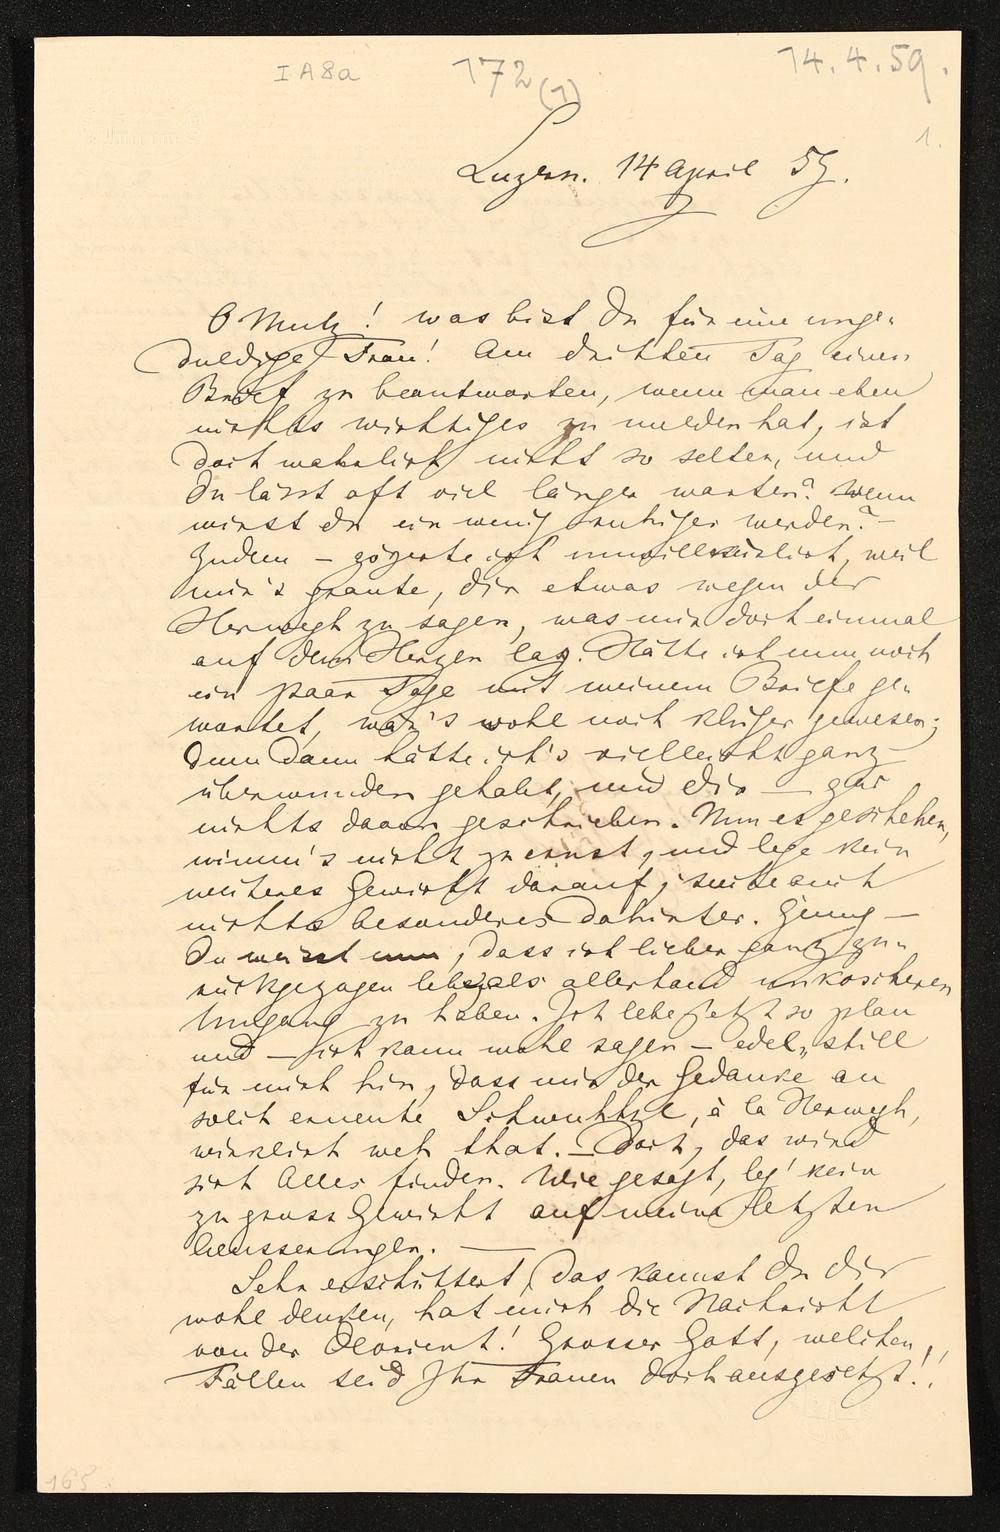 I A 8a
172 (1)
14. 4. 59.
1.
Luzern. 14 April 59.
O Mutz! was bist Du für eine unge-
duldige Frau! Am dritten Tag einen
Brief zu beantworten, wenn man eben
nichts wichtiges zu melden hat, ist
doch wahrlich nicht so selten, und
Du lässt oft viel länger warten? Wenn
wirst du ein wenig ruhiger werden? –
Zudem – zögerte ich unwillkürlich, weil
mir's graute, dir etwas wegen der
Herwegh zu sagen, was mir doch einmal
auf dem Herzen lag. Hätte ich nun noch
ein paar Tage mit meinem Briefe ge-
wartet, wär's wohl noch klüger gewesen;
denn dann hätte ich's vielleicht ganz
überwunden gehabt, und dir – gar
nichts davon geschrieben. Nun es geschehen,
nimm's nicht zu ernst, und lege kein
weiteres Gewicht darauf; suche auch
nichts besonderes dahinter. Genug –
Du weisst nun, dass ich lieber ganz zu-
rückgezogen lebe, als allerhand unkoscheren
Umgang zu haben. Ich lebe jetzt so plan
und – ich kann wohl sagen – edel-still
für mich hin, dass mir der Gedanke an
solch erneute, à la Herwegh,
wirklich weh that. – Doch, das wird
sich Alles finden. Wie gesagt, leg' kein
zu gross Gewicht auf meine letzten
Aeusserungen. —
Sehr erschüttert, das kannst Du dir
wohl denken, hat mich die Nachricht
von der! Grosser Gott, welchen
Fällen seid Ihr Frauen doch ausgesetzt!!
165